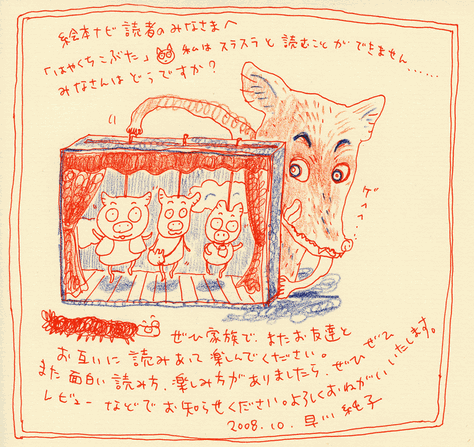 絵本ナビ 読者のみなさまへ
「はやくちこぶた」 私は スラスラ と 読むこと が できません......
みなさんは どうですか？
ゲッヘヘヘ...
ぜひ 家族で、また お友達と
お互いに 読みあって 楽しんでください。
また 面白い 読み方、楽しみ方が ありましたら、ぜひ ぜひ
レビュー などで お知らせください。よろしくおねがい いたします。
2008.10. 早川 純子